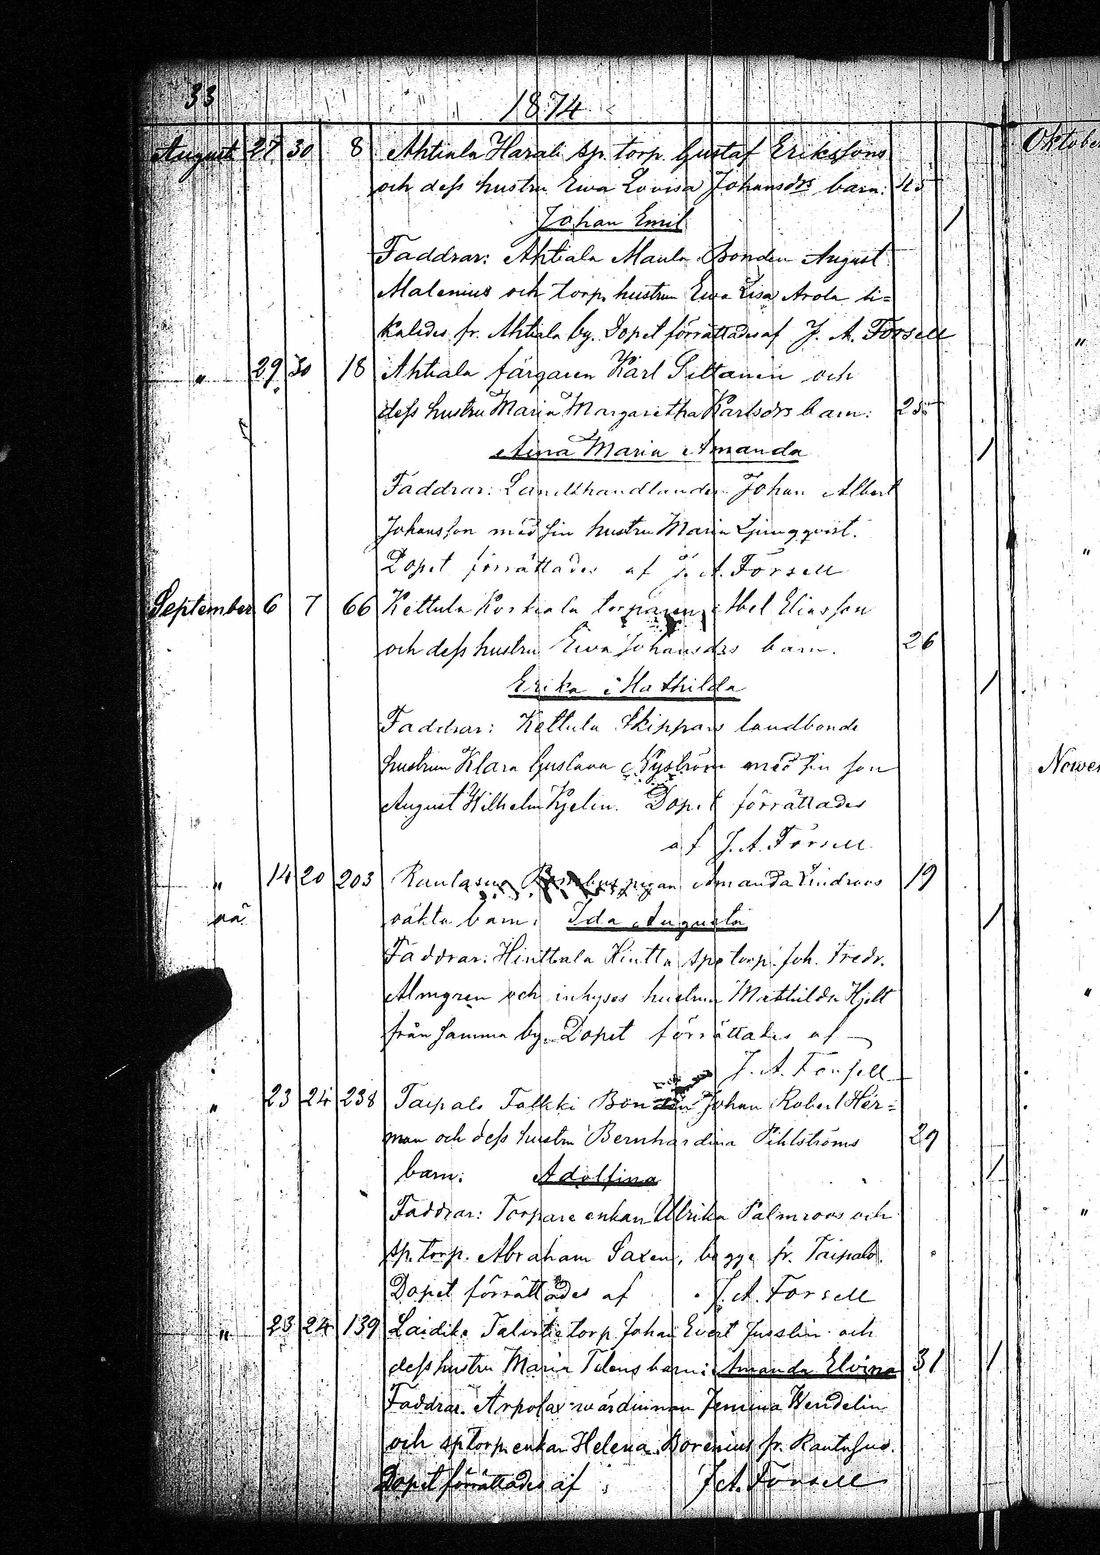 33
1874
August 27 30 8 Ahtiala Harali sp. torp. Gustaf Erikssons
och dess hustru Ewa Lovisa Johansdrs barn: 45
Johan Emil 1
Faddrar: Ahtiala Maula Bonden August
Malenius och torp. hustrun Ewa Lisa Arola li=
kaledes fr. Ahtiala by. Dopet förrättades af J. A. Forsell
" 29 30 18 Ahtiala färgaren Karl Siltanen och
dess hustru Maria Margaretha Karlsdrs barn: 25
Aina Maria Amanda 1
Faddrar: Landthandlanden Johan Albert
Johansson med sin hustru Maria Ljungqvist.
Dopet förrättades af J. A. Forsell
September 6 7 66 Kettula Koskiala torparen Abel Eliasson
och dess hustru Ewa Johansdrs barn. 26
Erika Mathilda 1
Faddrar: Kettula Skippars landbonde
hustrun Klara Gustava Nyström med sin son
August Wilhelm Kjelin. Dopet förrättades
af J. A. Forsell
" 14 20 203 Rautasuo pigan Amanda Lindroos 19
oä. oäkta barn: Ida Augusta 1
Faddrar: Hinttala Hintta sp. torp. Joh. Fredr.
Almgren och inhyses hustrun Mathilda Hjelt
från samma by. Dopet förrättades af
J. A. Forsell
" 23 24 238 Taipale Talkki Bonden Johan Robert Her=
man och dess hustru Bernhardina Pihlströms 29
barn: Adolfina 1
Faddrar: Torpare enkan Ulrika Palmroos och
sp. torp. Abraham Saxen, begge fr. Taipale.
Dopet förrättades af J. A. Forsell
" 23 24 139 Laidike Talvitie torp. Johan Evert Jusslin och
dess hustru Maria Telens barn: Amanda Elvina 31 1
Faddrar. Arpolax wärdinnan Jemina Wendelin
och sp torp. enkan Helena Borenius fr. Rautasuo.
Dopet förrättades af J. A. Forsell
Oktober
"
"
"
"